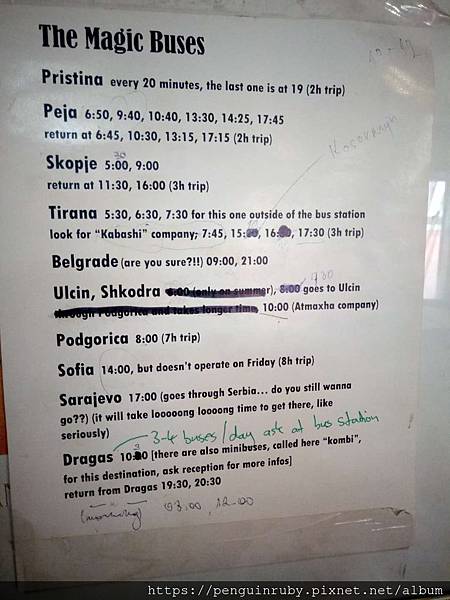 The Magic Buses
Pristina every 20 minutes, the last one is at 19 (2h trip)
Peja 6:50, 9:40, 10:40, 13:30, 14:25, 17:45
return at 6:45, 10:30, 13:15, 17:15 (2h trip)
30
Skopje 5:00, 9:00
return at 11:30, 16:00 (3h trip)
Tirana 5:30, 6:30, 7:30 for this one outside of the bus station
look for "Kabashi" company; 7:45, 15: 16: 17:30 (3h trip)
Belgrade (are you sure?!!) 09:00, 21:00
Ulcin, Shkodra 6:00 (only on summer), 8:00 goes to Ulcin
through Podgorica and takes longer time, 10:00 (Atmaxha company)
Podgorica 8:00 (7h trip)
Sofia 14:00, but doesn't operate on Friday (8h trip)
Sarajevo 17:00 (goes through Serbia... do you still wanna
go??) (it will take looooong loooong time to get there, like
seriously)
3-4 buses/day ask at bus station
Dragas [there are also minibuses, called here "kombi",
for this destination, ask reception for more infos]
return from Dragas 19:30, 20:30
03:00, 12:00
https://penguinruby.pixnet.net/album